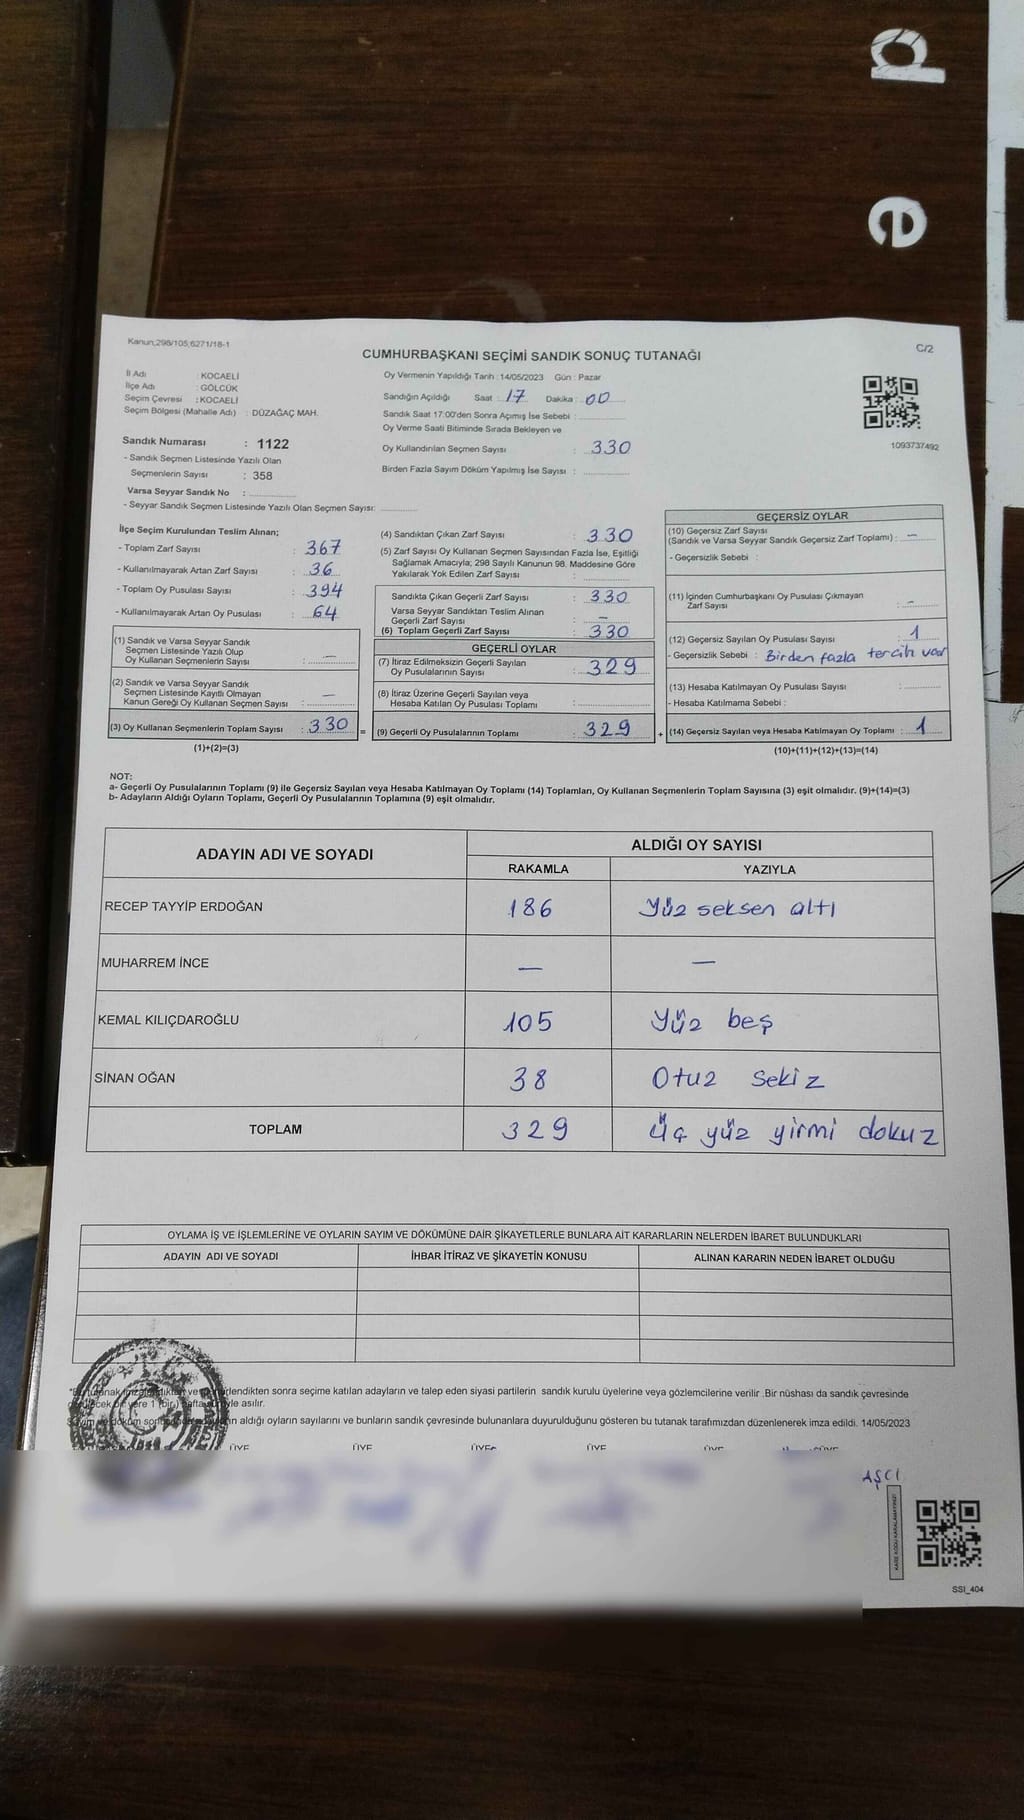 d
e
Kanun;298/105;6271/18-1
C/2
CUMHURBAŞKANI SEÇİMİ SANDIK SONUÇ TUTANAĞI
İl Adı : KOCAELİ
İlçe Adı : GÖLCÜK
Seçim Çevresi : KOCAELİ
Seçim Bölgesi (Mahalle Adı) : DÜZAĞAÇ MAH.
Sandık Numarası : 1122
- Sandık Seçmen Listesinde Yazılı Olan
Seçmenlerin Sayısı : 358
Varsa Seyyar Sandık No :
- Seyyar Sandık Seçmen Listesinde Yazılı Olan Seçmen Sayısı:
Oy Vermenin Yapıldığı Tarih : 14/05/2023 Gün : Pazar
Sandığın Açıldığı Saat : 17 Dakika : 00
Sandık Saat 17:00'den Sonra Açımış İse Sebebi :
Oy Verme Saati Bitiminde Sırada Bekleyen ve
Oy Kullandırılan Seçmen Sayısı : 330
Birden Fazla Sayım Döküm Yapılmış İse Sayısı :
1093737492
İlçe Seçim Kurulundan Teslim Alınan;
- Toplam Zarf Sayısı : 367
- Kullanılmayarak Artan Zarf Sayısı : 36
- Toplam Oy Pusulası Sayısı : 394
- Kullanılmayarak Artan Oy Pusulası : 64
(1) Sandık ve Varsa Seyyar Sandık
Seçmen Listesinde Yazılı Olup
Oy Kullanan Seçmenlerin Sayısı : —
(2) Sandık ve Varsa Seyyar Sandık
Seçmen Listesinde Kayıtlı Olmayan
Kanun Gereği Oy Kullanan Seçmen Sayısı : —
(3) Oy Kullanan Seçmenlerin Toplam Sayısı : 330 =
(1)+(2)=(3)
(4) Sandıktan Çıkan Zarf Sayısı : 330
(5) Zarf Sayısı Oy Kullanan Seçmen Sayısından Fazla İse, Eşitliği
Sağlamak Amacıyla; 298 Sayılı Kanunun 98. Maddesine Göre
Yakılarak Yok Edilen Zarf Sayısı :
Sandıkta Çıkan Geçerli Zarf Sayısı : 330
Varsa Seyyar Sandıktan Teslim Alınan
Geçerli Zarf Sayısı : —
(6) Toplam Geçerli Zarf Sayısı : 330
GEÇERLİ OYLAR
(7) İtiraz Edilmeksizin Geçerli Sayılan
Oy Pusulalarının Sayısı : 329
(8) İtiraz Üzerine Geçerli Sayılan veya
Hesaba Katılan Oy Pusulası Toplamı :
(9) Geçerli Oy Pusulalarının Toplamı : 329 +
GEÇERSİZ OYLAR
(10) Geçersiz Zarf Sayısı
(Sandık ve Varsa Seyyar Sandık Geçersiz Zarf Toplamı) : —
- Geçersizlik Sebebi :
(11) İçinden Cumhurbaşkanı Oy Pusulası Çıkmayan
Zarf Sayısı : —
(12) Geçersiz Sayılan Oy Pusulası Sayısı : 1
- Geçersizlik Sebebi : Birden fazla tercih var
(13) Hesaba Katılmayan Oy Pusulası Sayısı :
- Hesaba Katılmama Sebebi :
(14) Geçersiz Sayılan veya Hesaba Katılmayan Oy Toplamı : 1
(10)+(11)+(12)+(13)=(14)
NOT:
a- Geçerli Oy Pusulalarının Toplamı (9) ile Geçersiz Sayılan veya Hesaba Katılmayan Oy Toplamı (14) Toplamları, Oy Kullanan Seçmenlerin Toplam Sayısına (3) eşit olmalıdır. (9)+(14)=(3)
b- Adayların Aldığı Oyların Toplamı, Geçerli Oy Pusulalarının Toplamına (9) eşit olmalıdır.
ADAYIN ADI VE SOYADI ALDIĞI OY SAYISI
RAKAMLA YAZIYLA
RECEP TAYYİP ERDOĞAN 186 Yüz seksen altı
MUHARREM İNCE — —
KEMAL KILIÇDAROĞLU 105 Yüz beş
SİNAN OĞAN 38 Otuz sekiz
TOPLAM 329 Üç yüz yirmi dokuz
OYLAMA İŞ VE İŞLEMLERİNE VE OYLARIN SAYIM VE DÖKÜMÜNE DAİR ŞİKAYETLERLE BUNLARA AİT KARARLARIN NELERDEN İBARET BULUNDUKLARI
ADAYIN ADI VE SOYADI İHBAR İTİRAZ VE ŞİKAYETİN KONUSU ALINAN KARARIN NEDEN İBARET OLDUĞU
sonra seçime katılan adayların ve talep eden siyasi partilerin sandık kurulu üyelerine veya gözlemcilerine verilir .Bir nüshası da sandık çevresinde
asılır.
aldığı oyların sayılarını ve bunların sandık çevresinde bulunanlara duyurulduğunu gösteren bu tutanak tarafımızdan düzenlenerek imza edildi. 14/05/2023
ÜYE ÜYE ÜYE ÜYE ÜYE
AŞCI
SSI_404